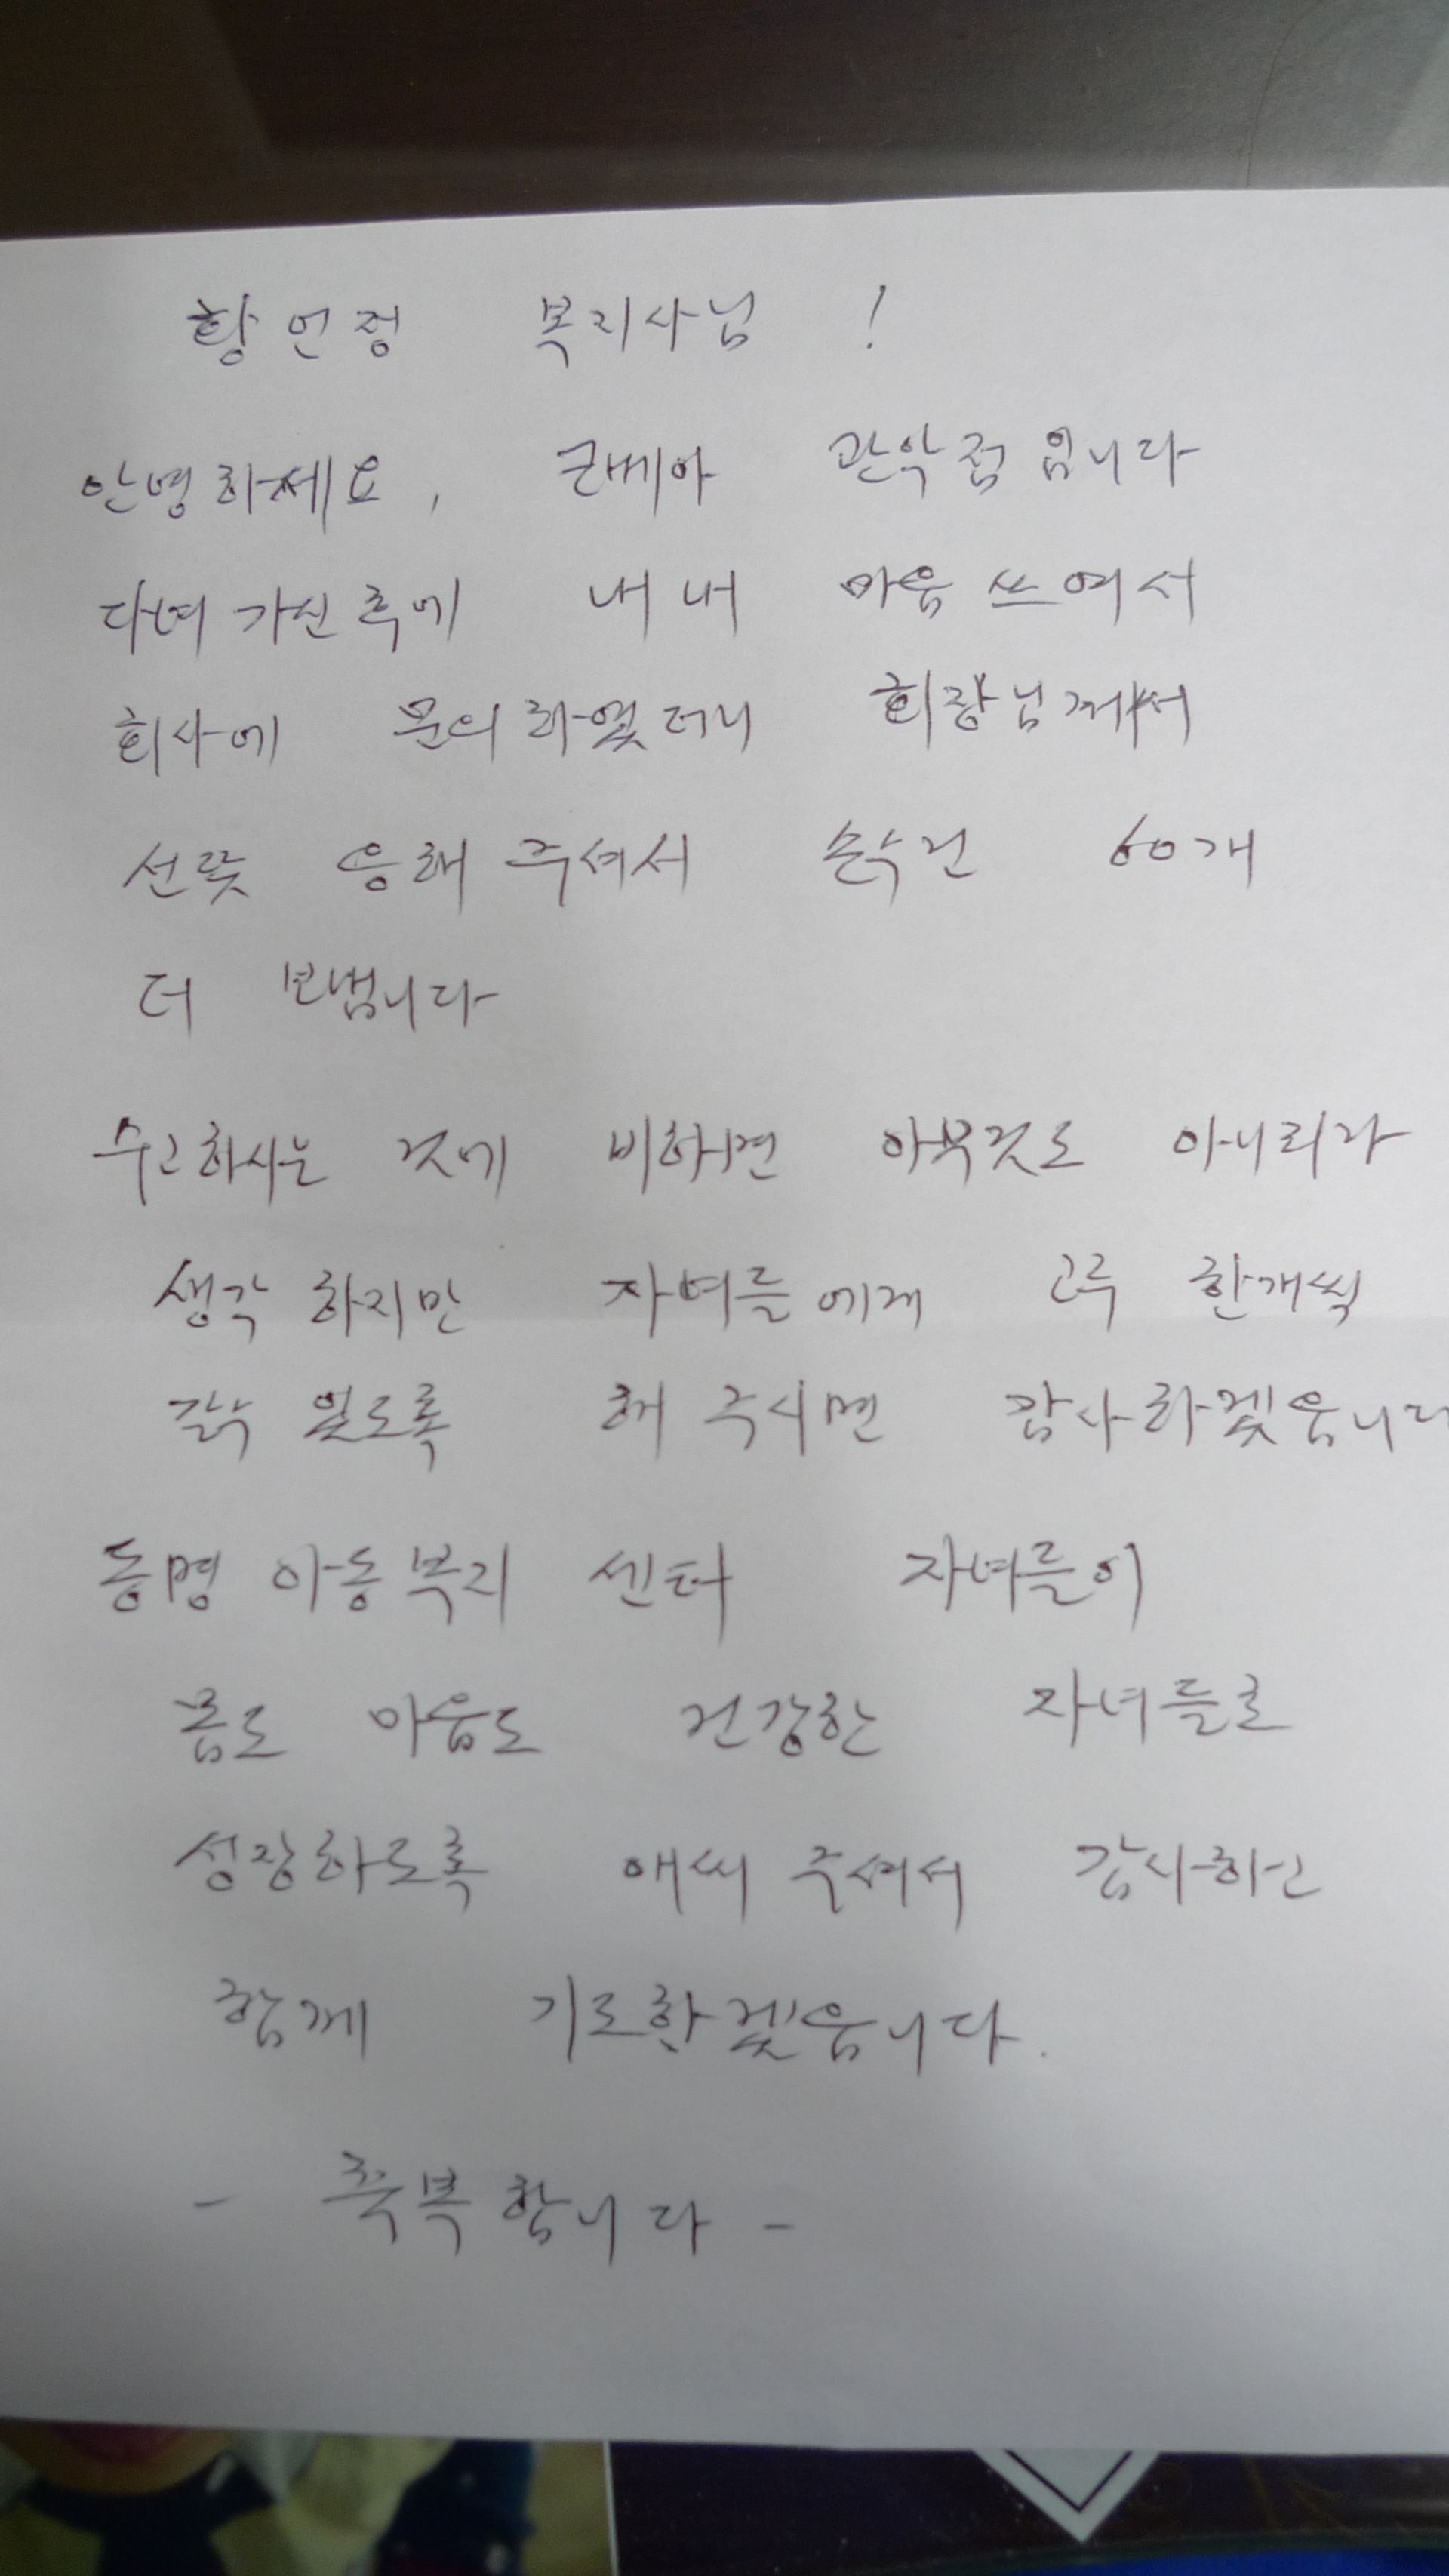 황언정 복지사님 !
안녕하세요, 쿤베아 관악점 입니다
다녀 가신 후에 내내 마음 쓰여서
회사에 문의 하였더니 회장님께서
선뜻 응해 주셔서 손수건 60개
더 보냅니다
수고하시는 것에 비하면 아무것도 아니리라
생각 하지만 자녀들에게 고루 한개씩
갈수 있도록 해 주시면 감사하겠읍니다
동명 아동복지 센터 자녀들이
몸도 마음도 건강한 자녀들로
성장하도록 애써 주셔서 감사하고
함께 기도하겠읍니다.
- 축복합니다 -